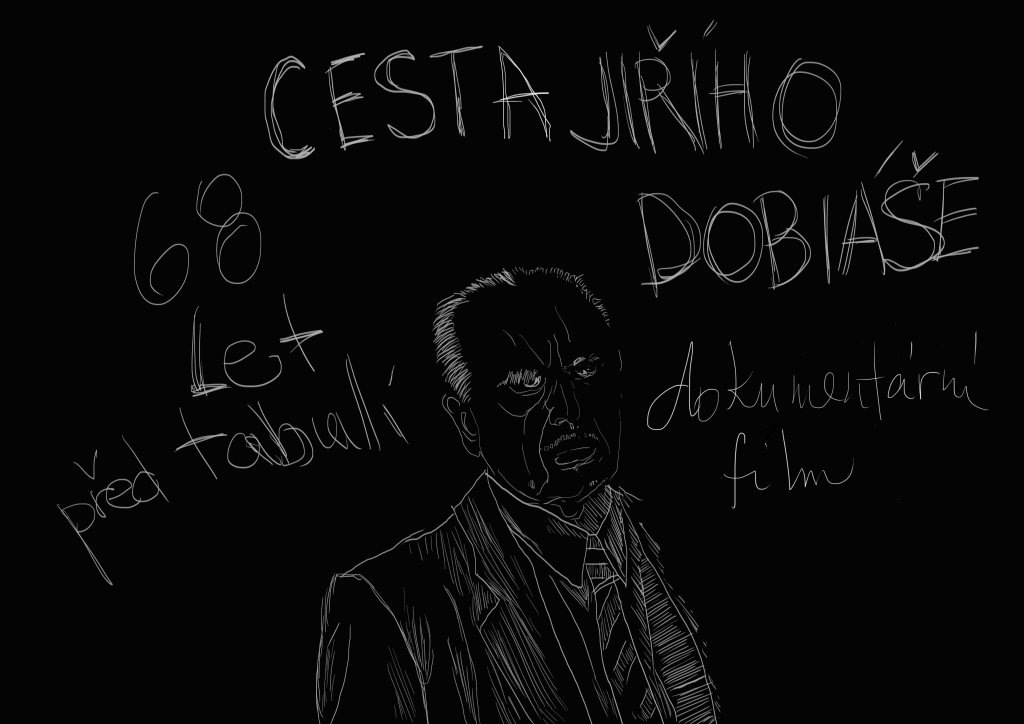 CESTA JIŘÍHO
DOBIÁŠE
68
Let
před tabulí
dokumentární
film